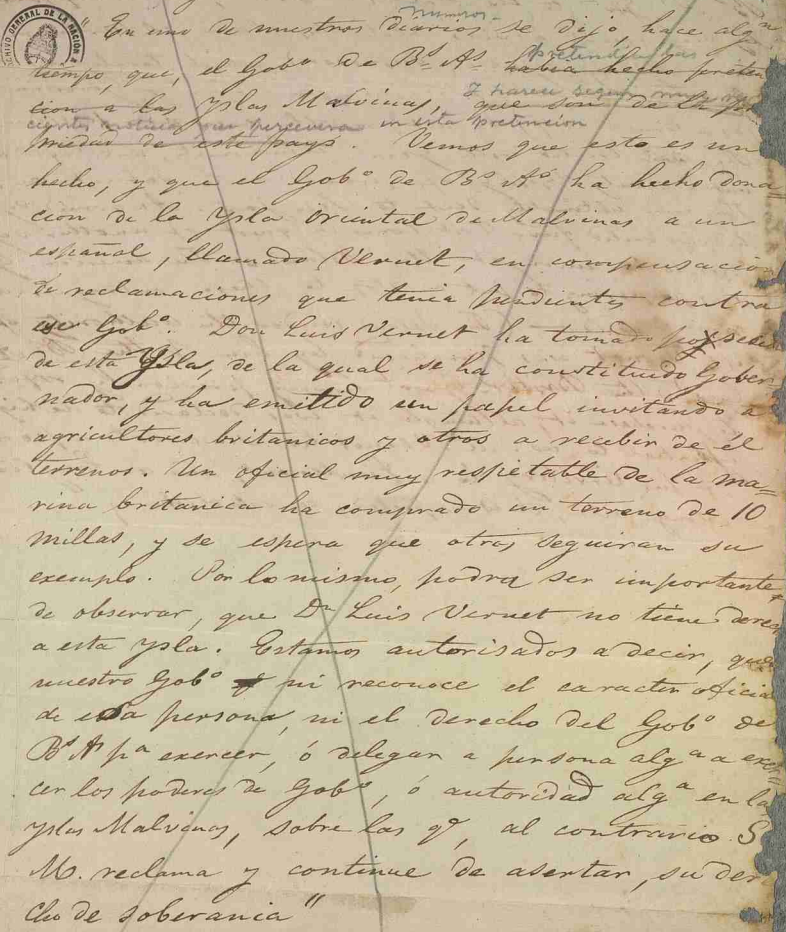 ARCHIVO GENERAL DE LA NACIÓN
numeros
" En uno de nuestros diarios se dijo, hace algn
pretendia las
tiempo, que, el Gobo de Bs As habia hecho preten
y parece segun muy re
cion a las Yslas Malvinas, que son de la pro
cientes noticias que persevera en esta pretencion
piedad de este pays. Vemos que esto es un
hecho, y que el Gobo de Bs As ha hecho dona=
cion de la Ysla Oriental de Malvinas a un
español, llamado Vernet, en compensacion
de reclamaciones que tenia pendientes contra
ese Gobo. Don Luis Vernet ha tomado
de esta Ysla, de la qual se ha constituido Gober
nador, y ha emitido un papel invitando a
agricultores britanicos y otros a recebir de él
terrenos. Un oficial muy respetable de la ma=
rina britanica ha comprado un terreno de 10
millas, y se espera que otros seguiran su
exemplo. Por lo mismo, podra ser importante
de observar, que Dn Luis Vernet no tiene derec
a esta ysla. Estamos autorisados a decir, que
nuestro Gobo ni reconoce el caracter oficial
de esa persona, ni el derecho del Gobo de
Bs As pa exercer, ó delegar a persona alga a exer=
cer los poderes de Gobo, ó autoridad alga en las
yslas Malvinas, sobre las qe, al contrario S.
M. reclama y continue de asertar, su dere
cho de soberania "